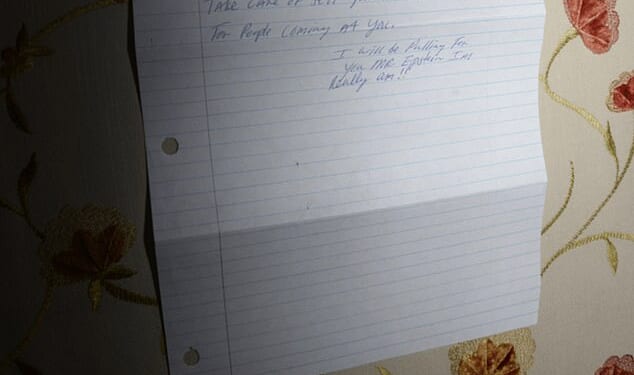 Take Care of Self
For People Coming At You.
I will be Pulling For
you MR. Epstein Im
Really am!!